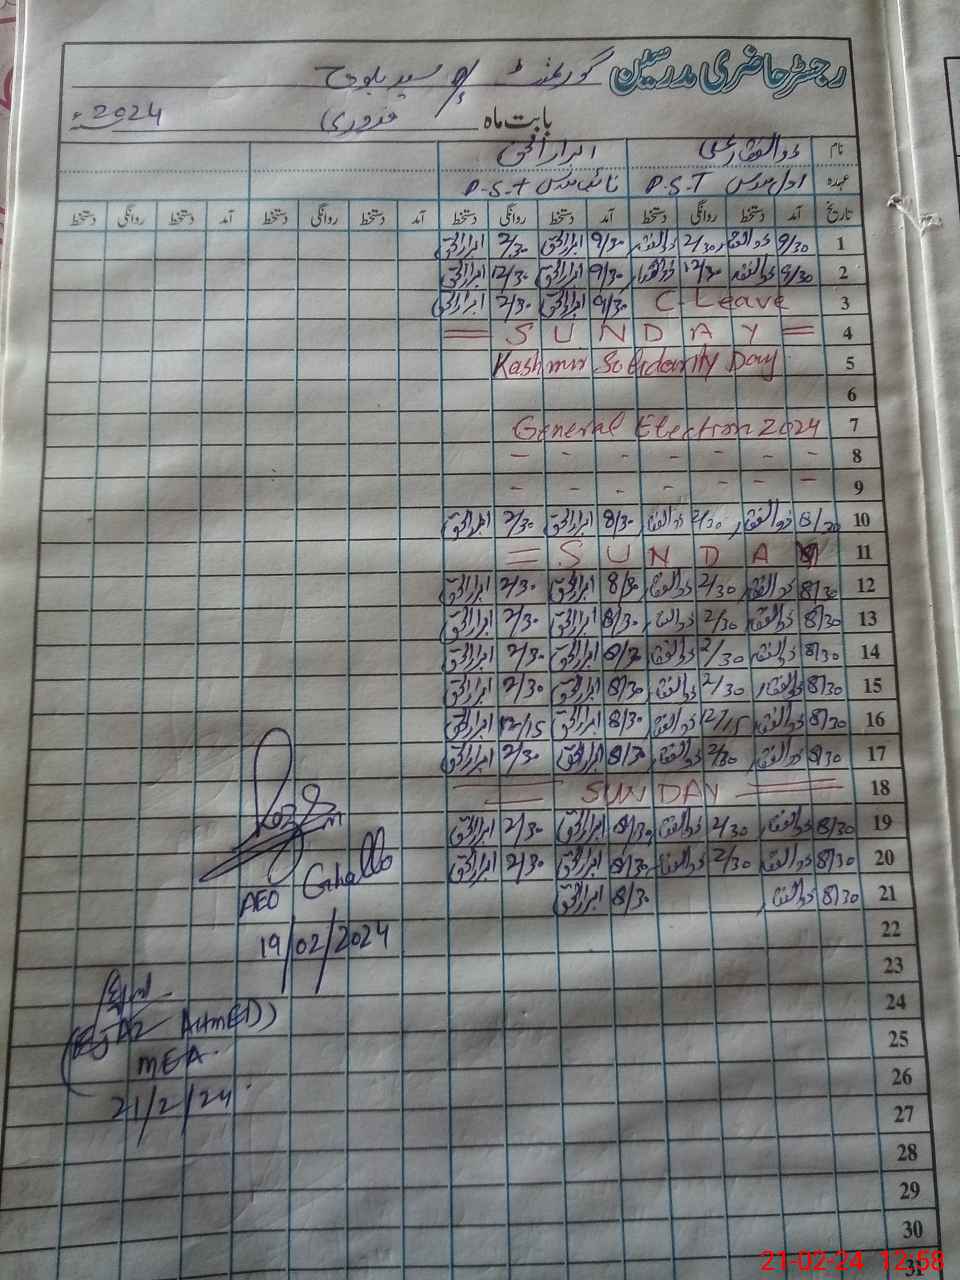 رجسٹر حاضری مدرسین گورنمنٹ p/s سید بلوچ
بابت ماہ فروری 2024ء
نام ذوالفقار علی ابرار الحق
عہدہ اول مدرس P.S.T نائب مدرس P.S.T
تاریخ آمد دستخط روانگی دستخط آمد دستخط روانگی دستخط آمد دستخط روانگی دستخط آمد دستخط روانگی دستخط
1 9/30 ذوالفقار 2/30 ذوالفقار 9/30 ابرارالحق 2/30 ابرارالحق
2 9/30 ذوالفقار 12/30 ذوالفقار 9/30 ابرارالحق 12/30 ابرارالحق
3 C-Leave 9/30 ابرارالحق 2/30 ابرارالحق
4 = SUNDAY =
5 Kashmir Solidarity Day
6
7 General Election 2024
8 - - - - - - -
9 - - - - - - -
10 8/30 ذوالفقار 2/30 ذوالفقار 8/30 ابرارالحق 2/30 ابرارالحق
11 = SUNDAY
12 8/30 ذوالفقار 2/30 ذوالفقار 8/30 ابرارالحق 2/30 ابرارالحق
13 8/30 ذوالفقار 2/30 ذوالفقار 8/30 ابرارالحق 2/30 ابرارالحق
14 8/30 ذوالفقار 2/30 ذوالفقار 8/30 ابرارالحق 2/30 ابرارالحق
15 8/30 ذوالفقار 2/30 ذوالفقار 8/30 ابرارالحق 2/30 ابرارالحق
16 8/30 ذوالفقار 12/15 ذوالفقار 8/30 ابرارالحق 12/15 ابرارالحق
17 8/30 ذوالفقار 2/30 ذوالفقار 8/30 ابرارالحق 2/30 ابرارالحق
18 = SUNDAY =
19 8/30 ذوالفقار 2/30 ذوالفقار 8/30 ابرارالحق 2/30 ابرارالحق
20 8/30 ذوالفقار 2/30 ذوالفقار 8/30 ابرارالحق 2/30 ابرارالحق
21 8/30 ذوالفقار 8/30 ابرارالحق
22
23
24
25
26
27
28
29
30
31
AEO Ghallo
19/02/2024
(EJAZ AHMED)
MEA
21/2/24
21-02-24 12:58